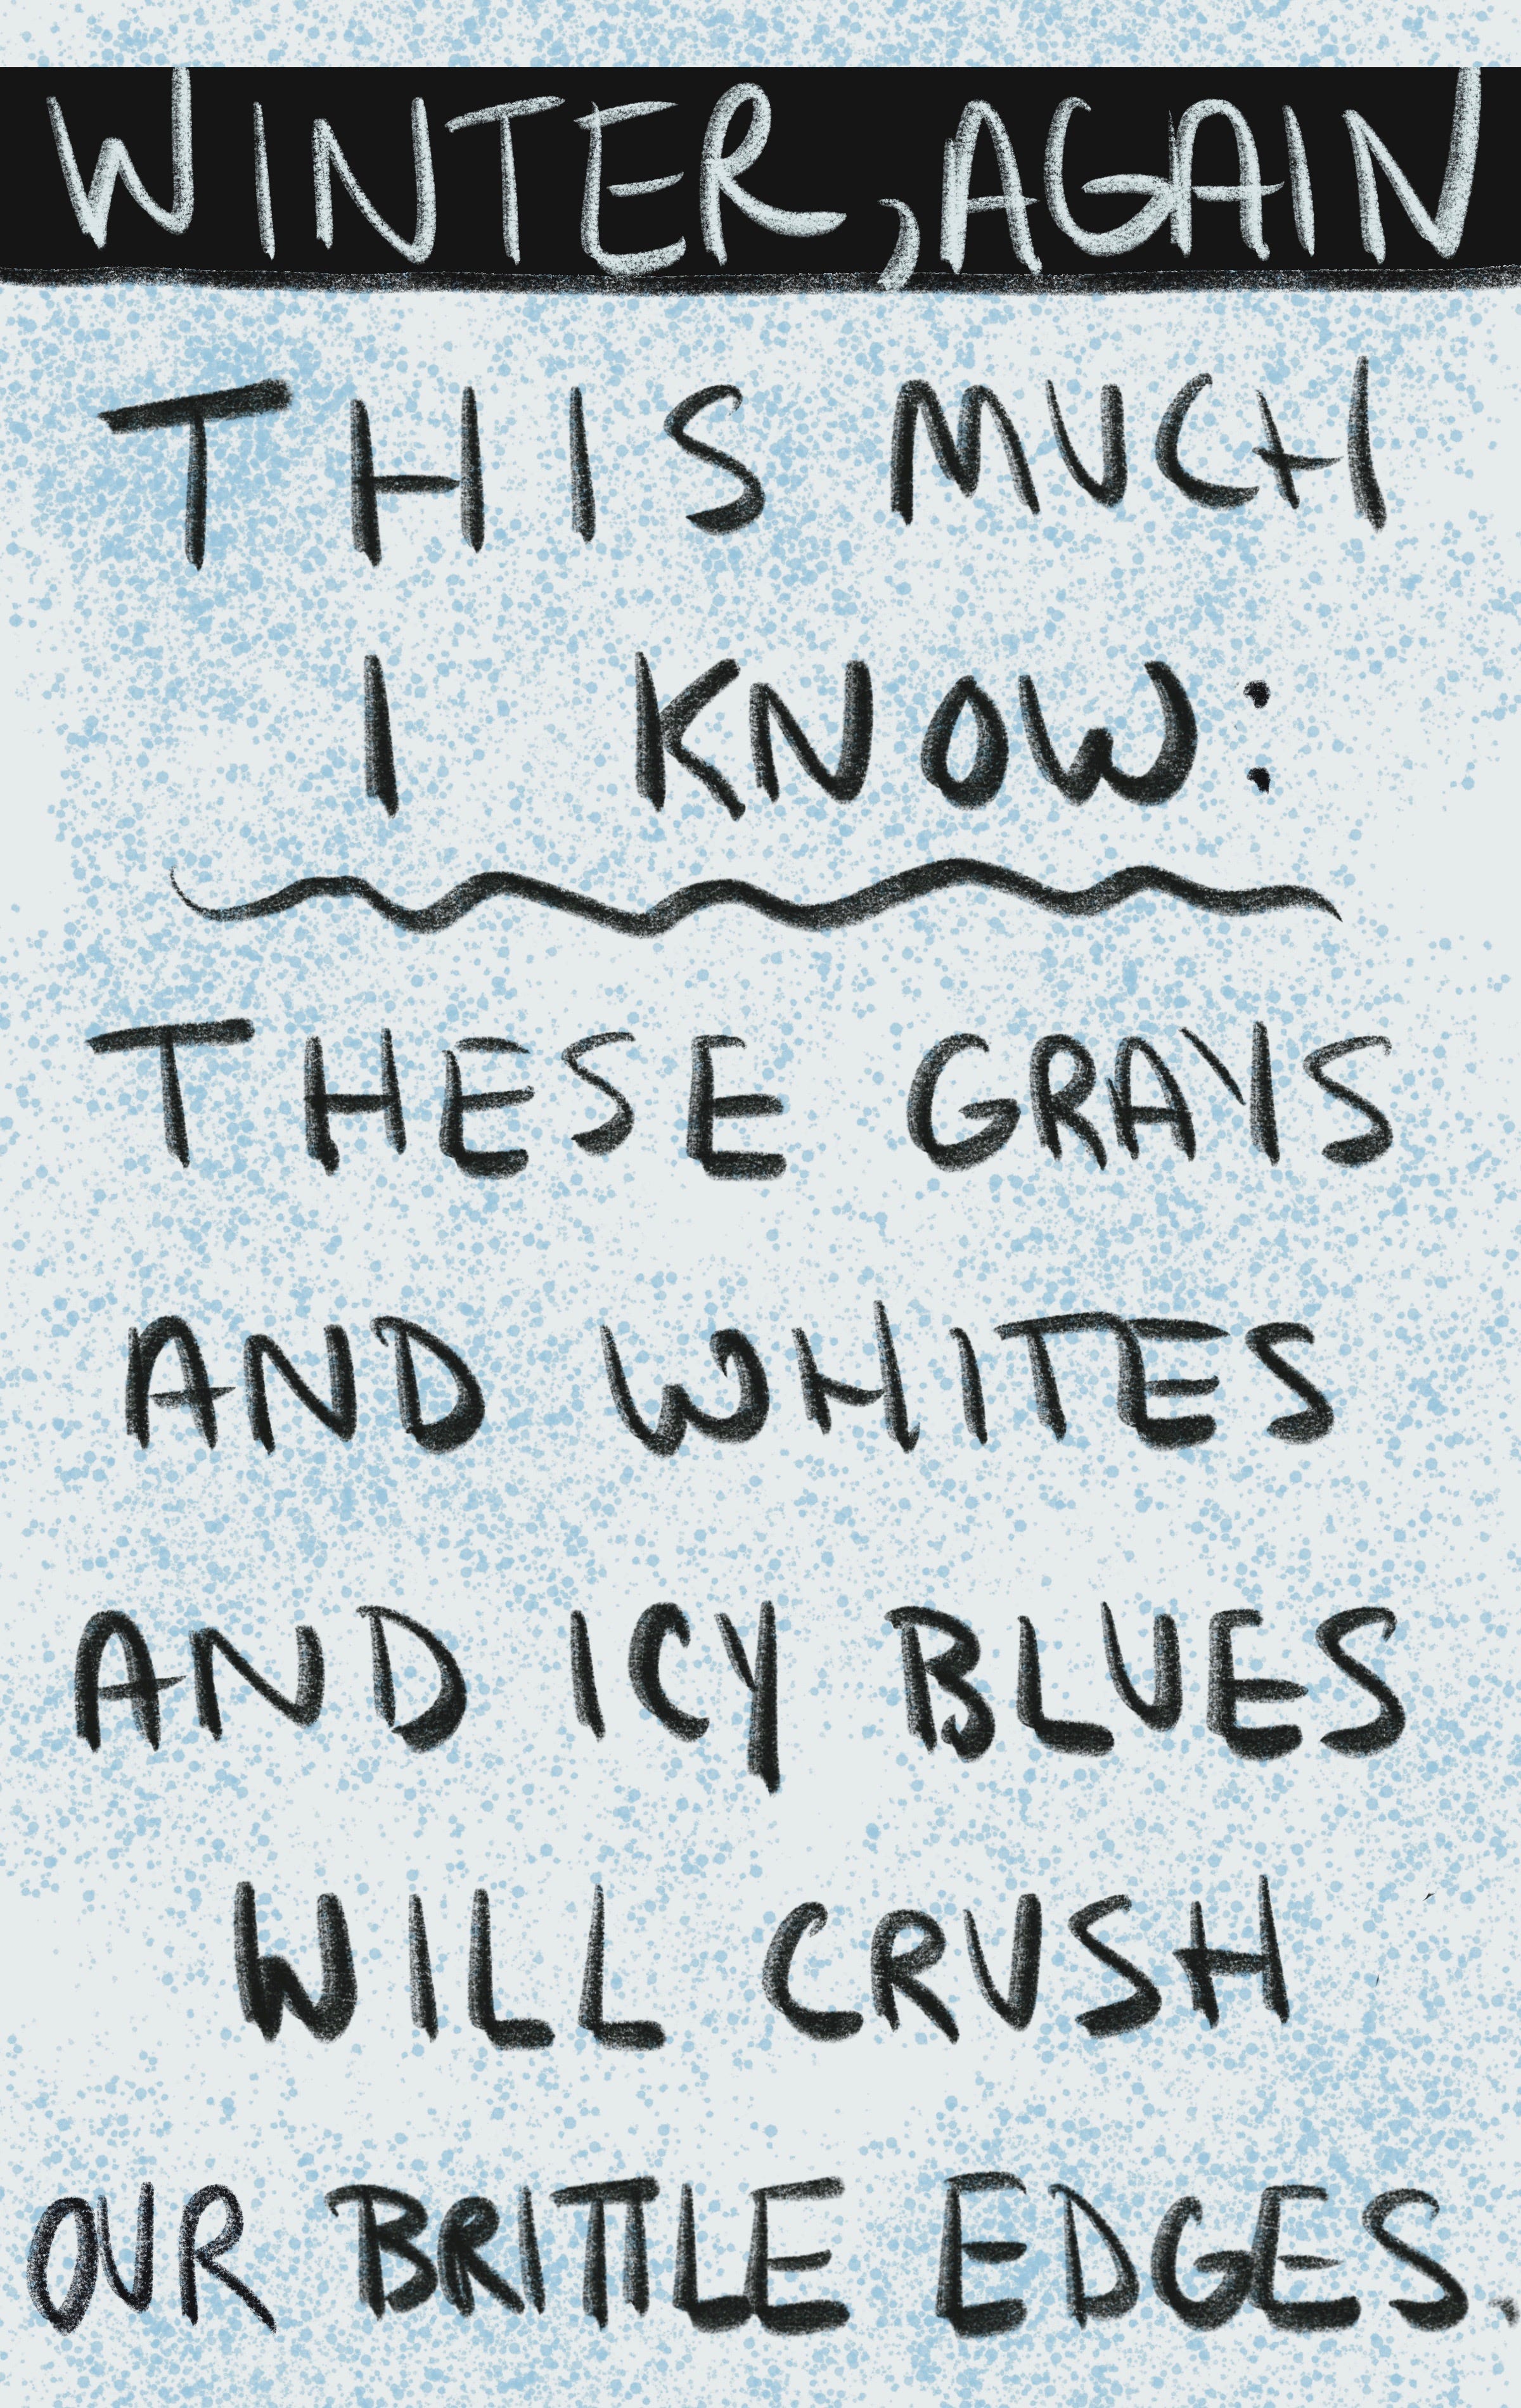 WINTER, AGAIN
THIS MUCH
I KNOW:
THESE GRAYS
AND WHITES
AND ICY BLUES
WILL CRUSH
OUR BRITTLE EDGES.